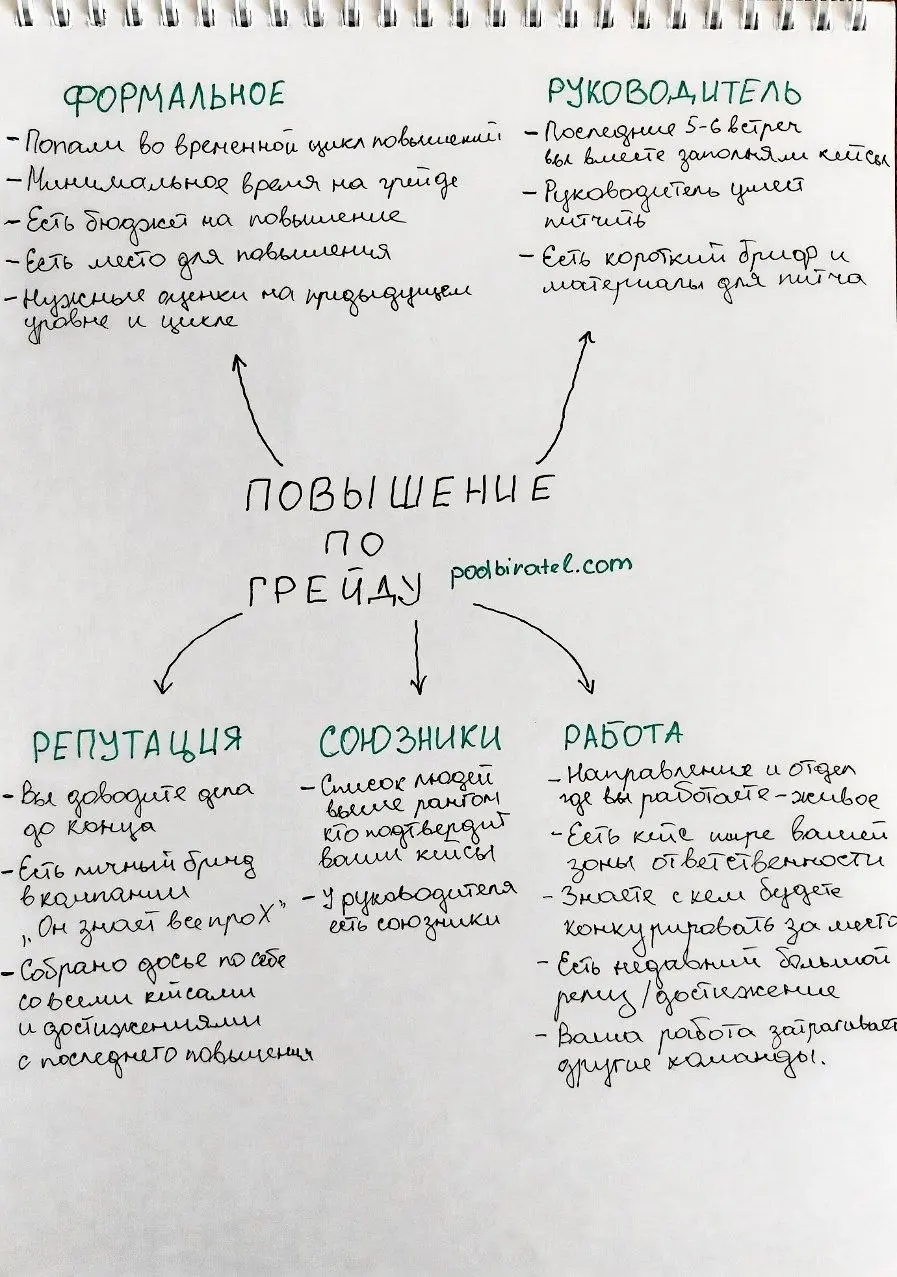 ФОРМАЛЬНОЕ
- Попали во временной цикл повышений
- Минимальное время на грейде
- Есть бюджет на повышение
- Есть место для повышения
- Нужные оценки на предыдущем
уровне и цикле
РУКОВОДИТЕЛЬ
- Последние 5-6 встреч
вы вместе заполняли кейсы
- Руководитель умеет
питчить
- Есть короткий бриф и
материалы для питча
ПОВЫШЕНИЕ
ПО
ГРЕЙДУ
podbiratel.com
РЕПУТАЦИЯ
- Вы доводите дела
до конца
- Есть личный бренд
в компании
„Он знает все про X"
- Собрано досье по себе
со всеми кейсами
и достижениями
с последнего повышения
СОЮЗНИКИ
- Список людей
выше рангом
кто подтвердит
ваши кейсы
- У руководителя
есть союзники
РАБОТА
- Направление и отдел
где вы работаете - живое
- Есть кейс шире вашей
зоны ответственности
- Знаете с кем будете
конкурировать за место
- Есть недавний большой
релиз/достижение
- Ваша работа затрагивает
другие команды.